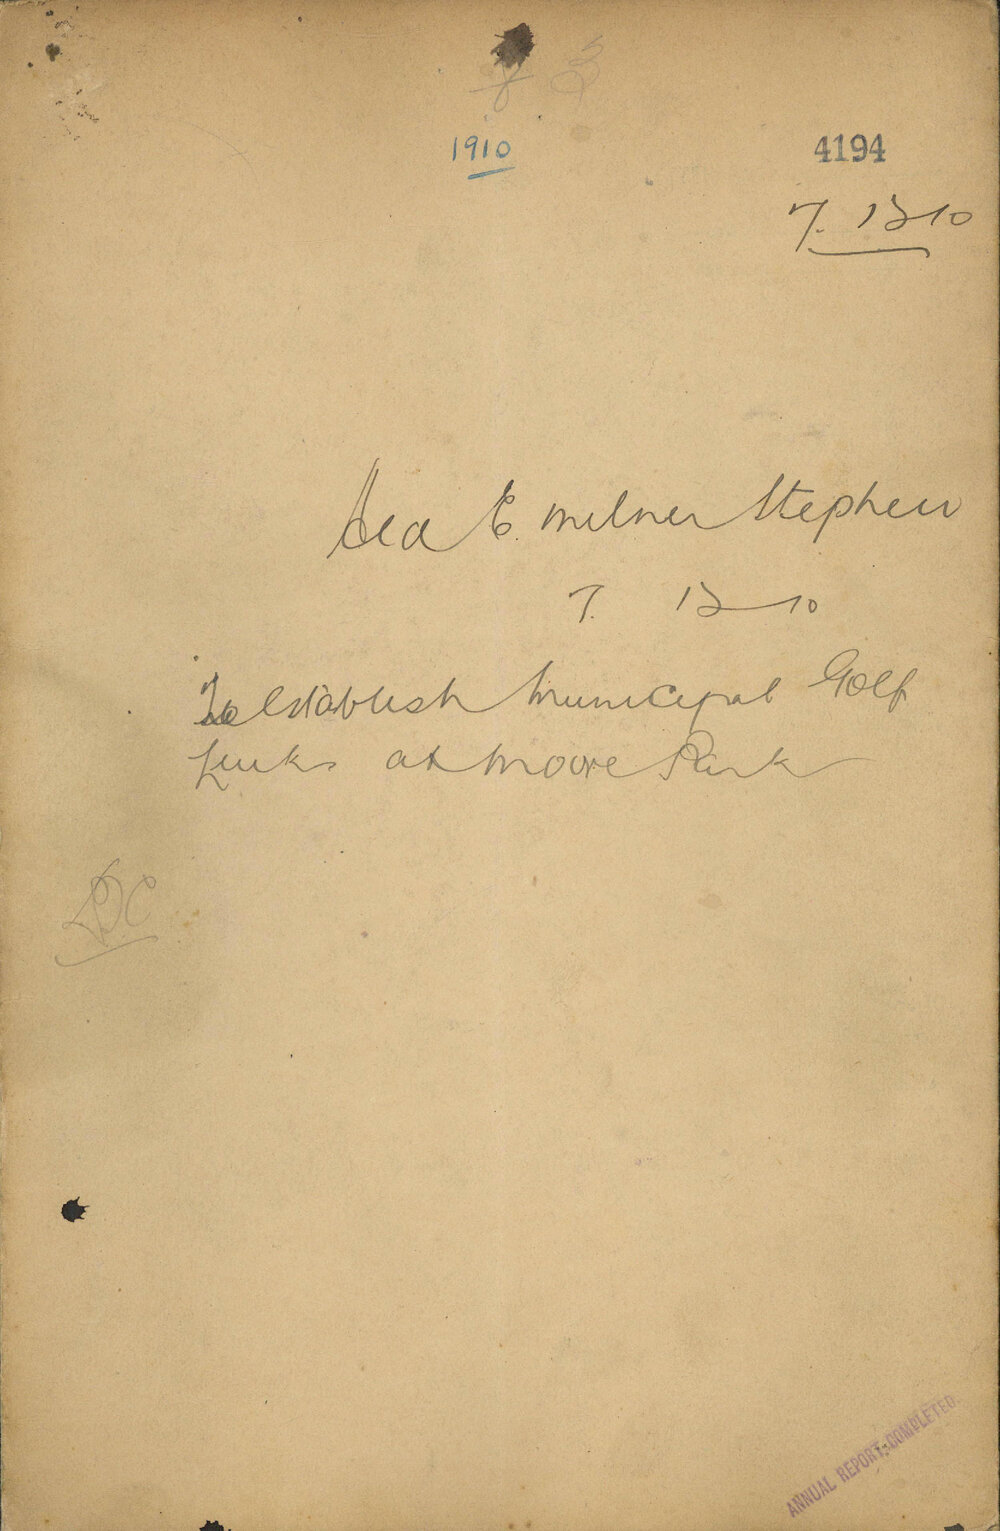 1910
4194
7. 12 10
Ald E. Milner Stephen
7. 12 10
To Establish Municipal Golf
Links at Moore Park
ANNUAL REPORT. COMPLETED.